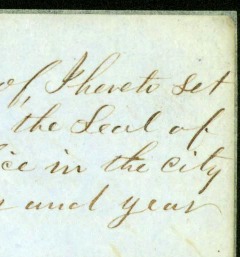 of, I hereto set
the Seal of
ice in the city
and year